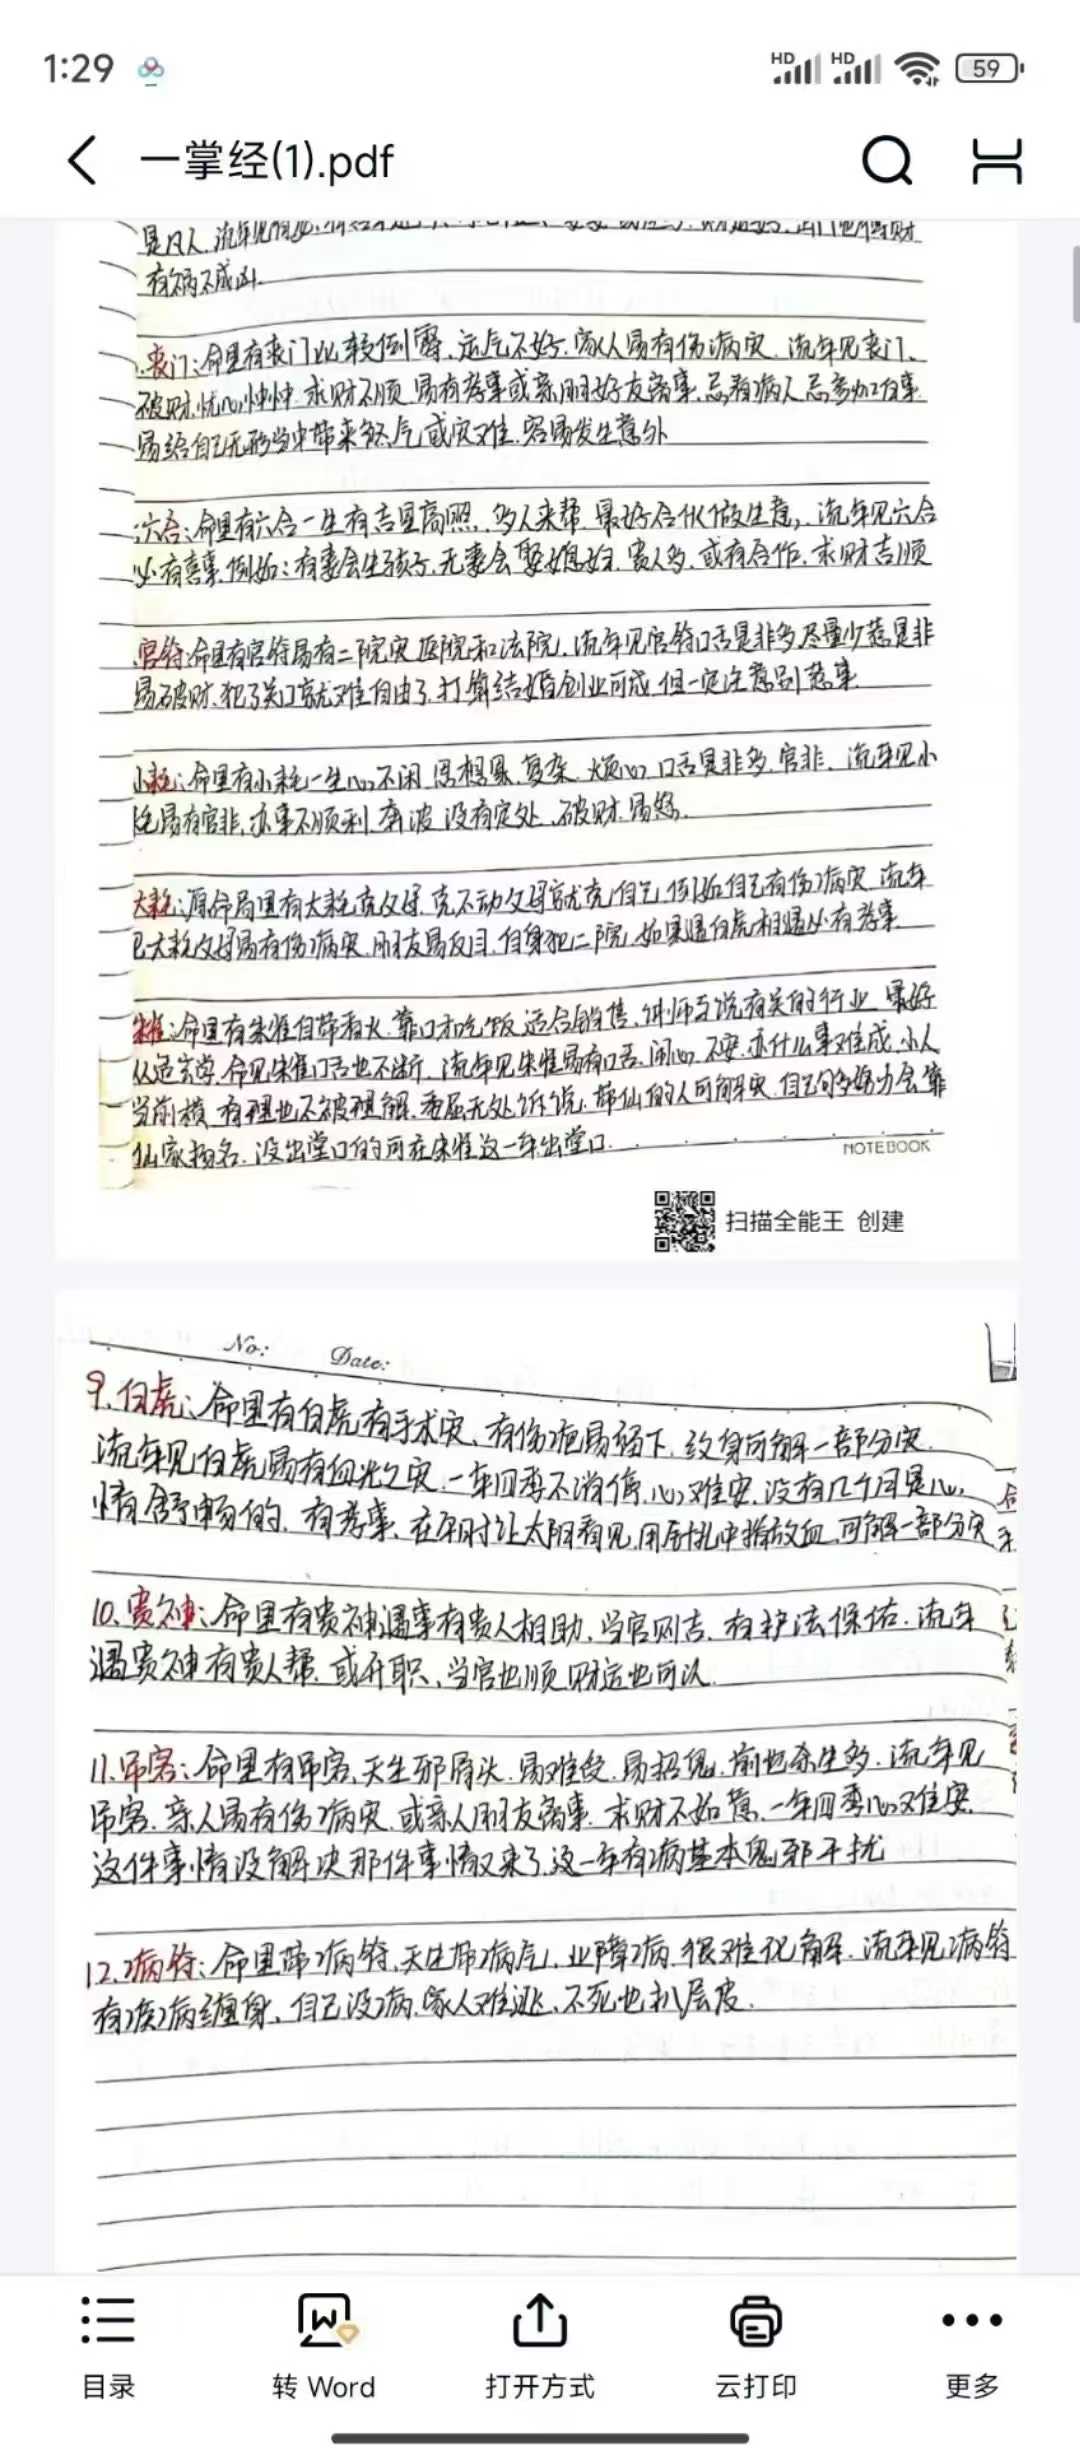 1:29
HD HD 59
一掌经(1).pdf
是凡人.流年见
有祸不成凶.
丧门:命里有丧门比较倒霉、运气不好.家人易有伤病灾.流年见丧门、
破财.忧心忡忡.求财不顺.易有孝事或亲朋好友离事.忌看病人忌参加白事
易给自己无形当中带来煞气或灾难.容易发生意外
六合:命里有六合一生有吉星高照.多人来帮.最好合伙做生意,流年见六合
必有喜事.例如:有妻会生孩子.无妻会娶媳妇.贵人多.或有合作.求财吉顺
官符:命里有官符易有二院灾.医院和法院.流年见官符口舌是非多.尽量少惹是非
易破财.犯了关口就难自由了.打算结婚创业可成.但一定注意别惹事.
小耗:命里有小耗一生心不闲.思想累.复杂.烦心.口舌是非多.官非、流年见小
耗易有官非,办事不顺利.奔波.没有定处、破财.易怒.
大耗:原命局里有大耗克父母.克不动父母就克自己.例如自己有伤病灾.流年
见大耗父母易有伤病灾.朋友易反目.自身犯二院.如果遇白虎相遇必有孝事.
朱雀:命里有朱雀自带香火.靠口才吃饭.适合销售、讲师与说有关的行业.最好
从适玄学.命见朱雀口舌也不断.流年见朱雀易有口舌.闹心.不安.办什么事难成.小人
当前横.有理也不被理解.委屈无处诉说.带仙的人可解灾.自己多努力会靠
仙家扬名.没出堂口的可在朱雀这一年出堂口.
NOTEBOOK
扫描全能王 创建
No: Date:
9.白虎:命里有白虎有手术灾、有伤疤易留下.纹身可解一部分灾.
流年见白虎易有血光之灾.一年四季不消停.心难安.没有几个月是心
情舒畅的.有孝事.在午时让太阳看见.用针扎中指放血.可解一部分灾
10、贵神:命里有贵神遇事有贵人相助、当官则吉.有护法保佑.流年
遇贵神有贵人帮.或升职、当官也顺.财运也可以.
11.吊客:命里有吊客、天生邪骨头.易难受.易招鬼.前世杀生多.流年见
吊客.亲人易有伤病灾.或亲人朋友离事.求财不如意.一年四季心难安.
这件事情没解决那件事情又来了.这一年有病基本鬼邪干扰
12.病符:命里带病符.天生带病气.业障病.很难化解.流年见病符
有疾病缠身、自己没病.家人难逃、不死也扒层皮.
目录 转 Word 打开方式 云打印 更多